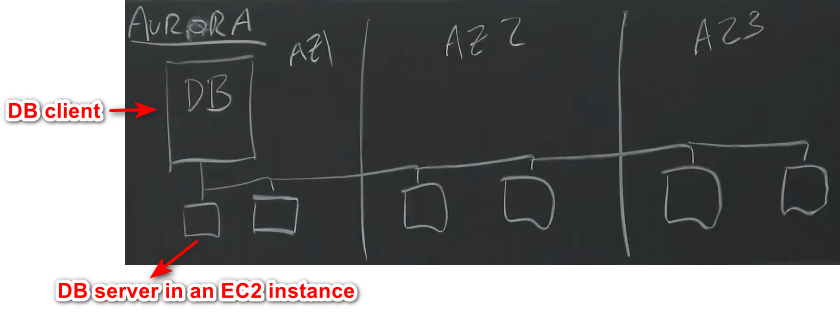 AURORA
AZ1
AZ2
AZ3
DB
DB client
DB server in an EC2 instance